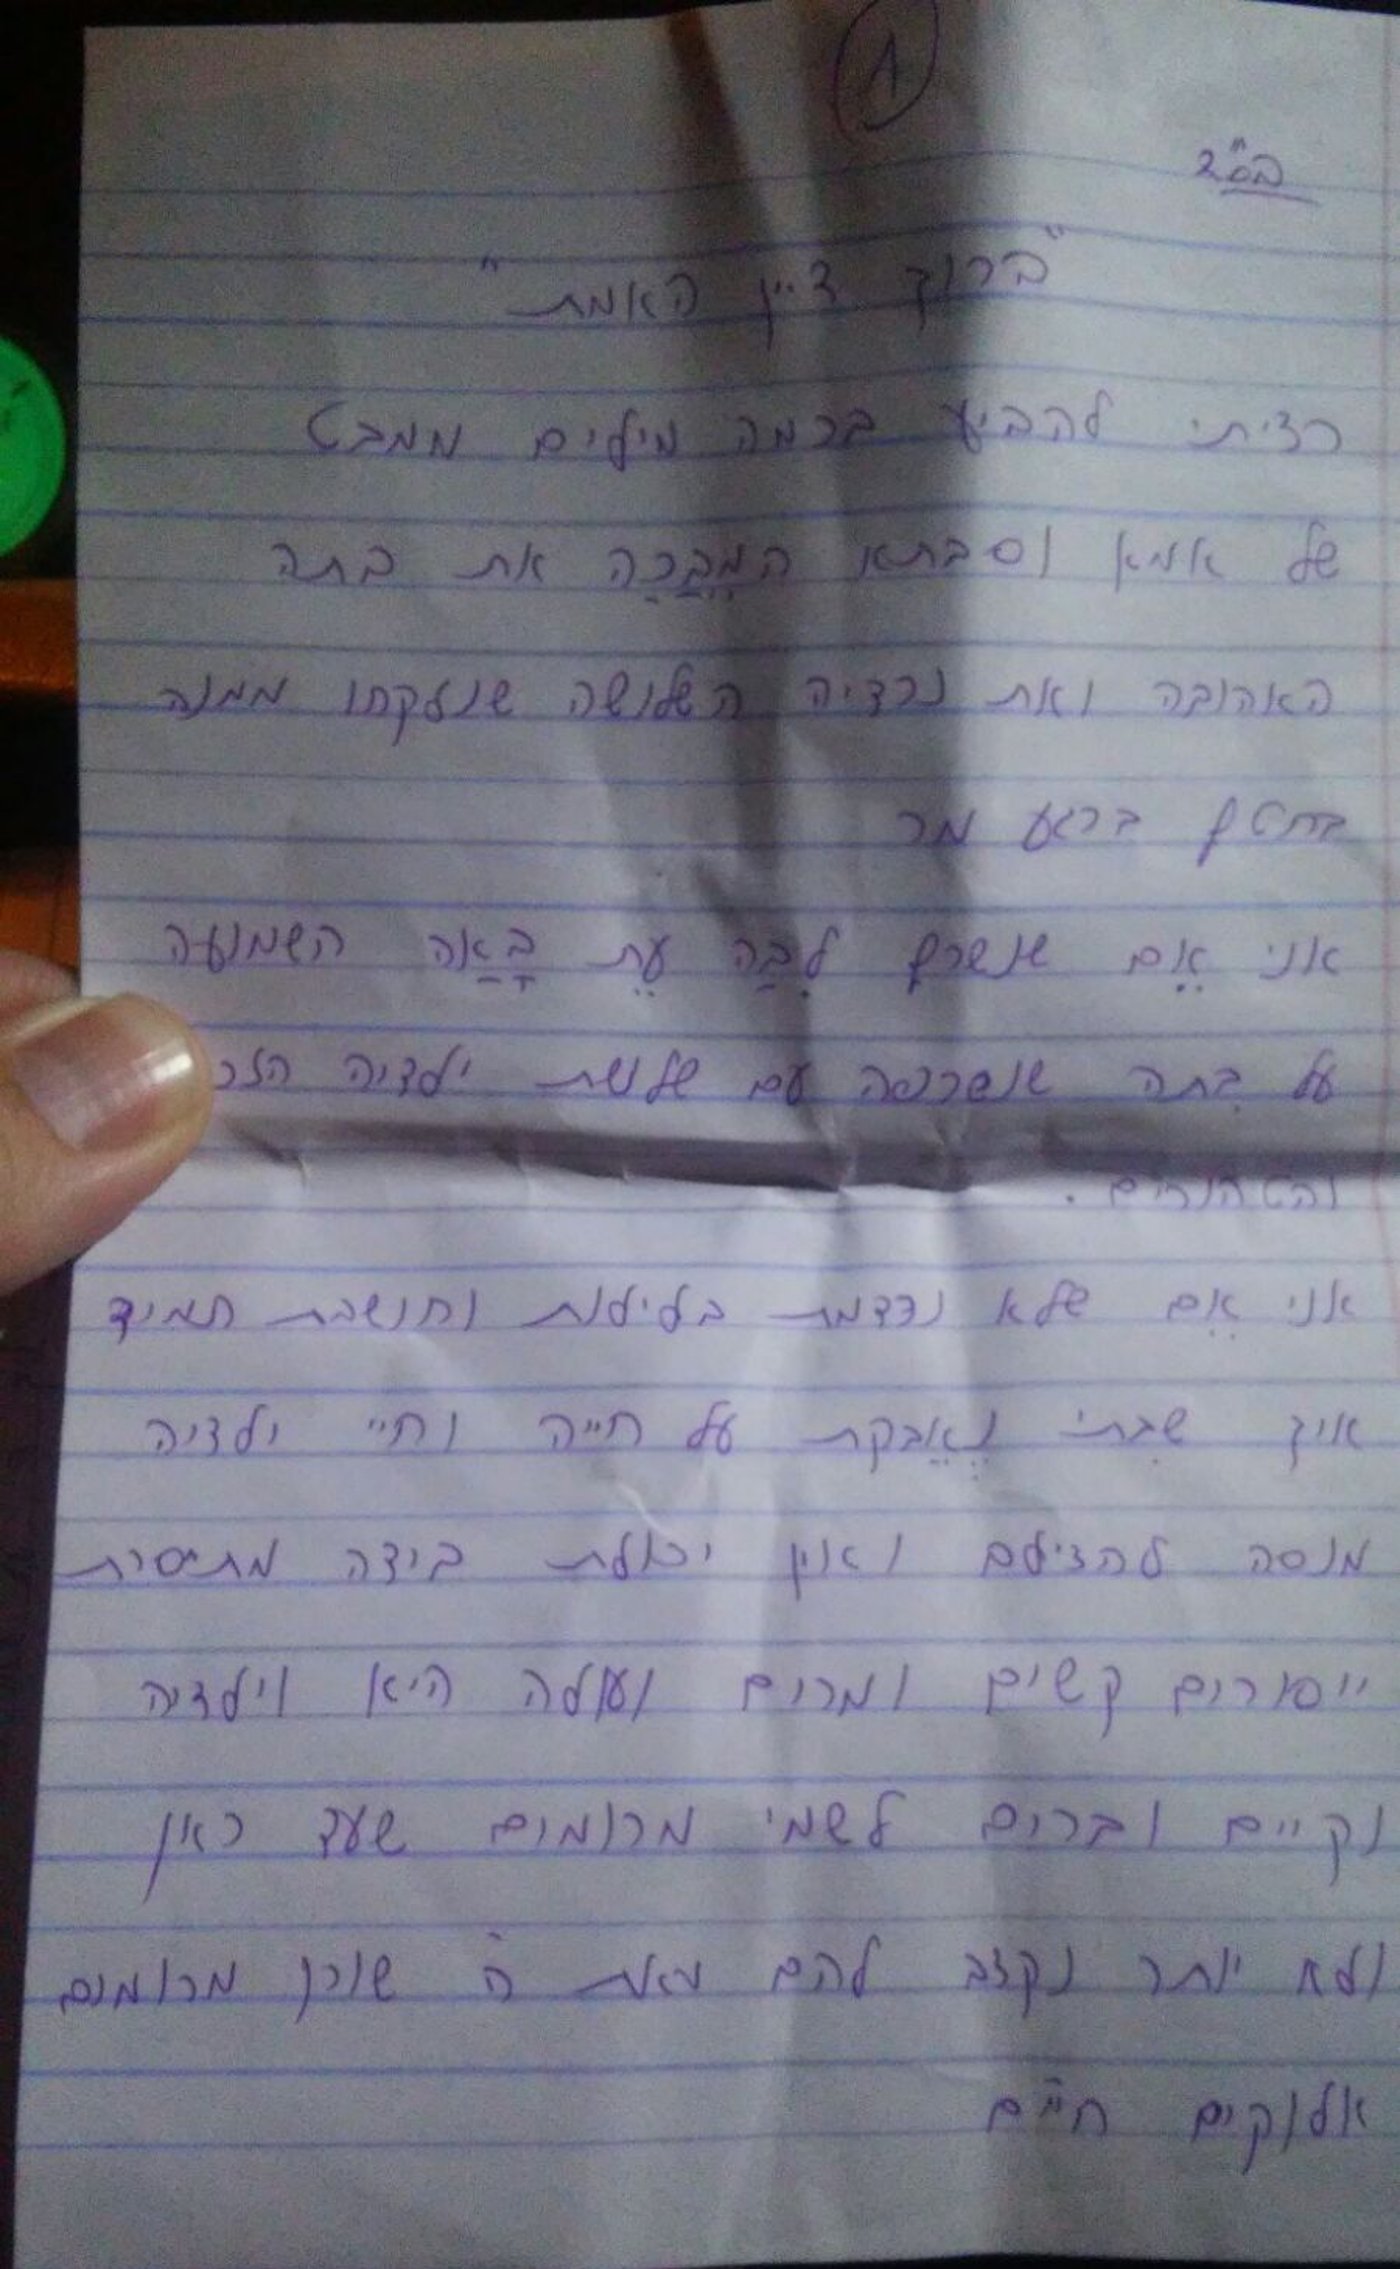 1
בס"ד
"ברוך דיין האמת"
רציתי להביע בכמה מילים ממבט
של אמא וסבתא המְבַכָּה את בתה
האהובה ואת נכדיה השלושה שנלקחו ממנה
בחטף ברגע מר
אני אֵם שנשרף לִבָּהּ עֵת בָּאָה השמועה
על בִתה שנשרפה עם שלושת ילדיה הזכ
והטהורים.
אני אֵם שלא נרדמת בלילות וחושבת תמיד
איך שבִתי נֶאֱבקת על חייה וחיי ילדיה
מנסה להצילם ואין יכולת בידה מתיסרת
ייסורים קשים ומרים ועולה היא וילדיה
נקיים וברים לשמי מרומים שעד כאן
ולא יותר נקצב להם מאת ה' שוכן מרומים
אלוקים חיים